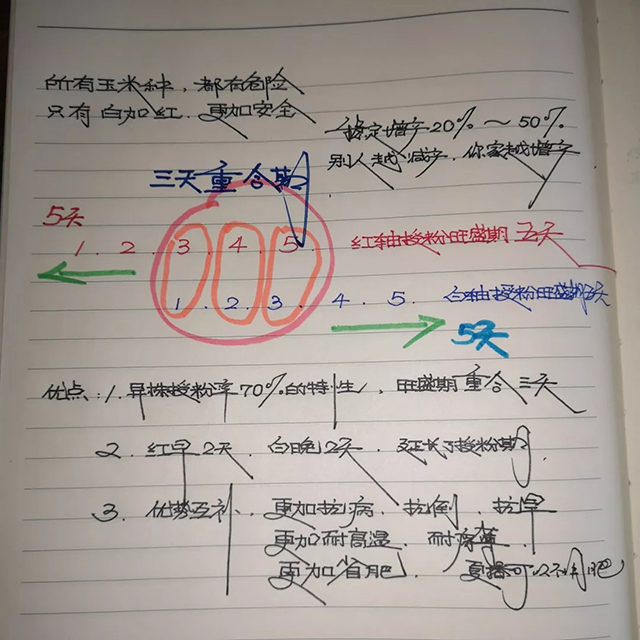 所有玉米种，都有危险
只有白加红．更加安全
稳定增产20%～50%
别人越减产，你家越增产
三天重合期
5天
1．2．3．4．5．红轴授粉旺盛期五天
1．2．3．4．5．白轴授粉旺期5天
5天
优点：1．早株授粉率70%的特性，旺盛期重合三天
2．红早2天．白晚2天．延长了授粉期
3．优势互补．更加抗病．抗倒．抗旱
更加耐高温．耐
更加省肥．夏播可以不用肥